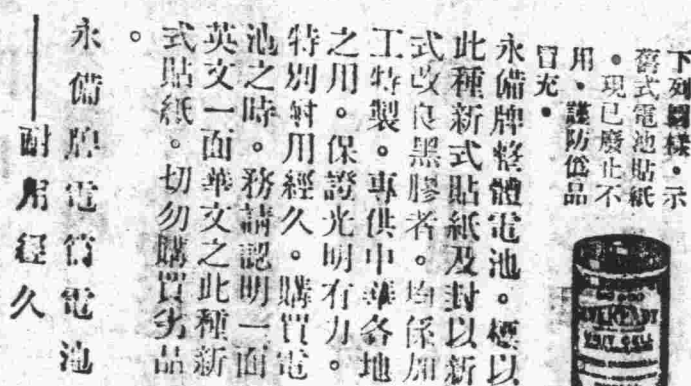 下列圖樣。示
舊式電池貼紙
。現已廢止不
用。謹防僞品
冒充。
永備牌整體電池。標以
此種新式貼紙及封以新
式改良黑膠者。均係加
工特製。專供中華各地
之用。保證光明有力。
特別耐用經久。購買電
池之時。務請認明一面
英文一面華文之此種新
式貼紙。切勿購買劣品
。
永備牌電筒電池
——耐用經久
EVEREADY
UNIT CELL